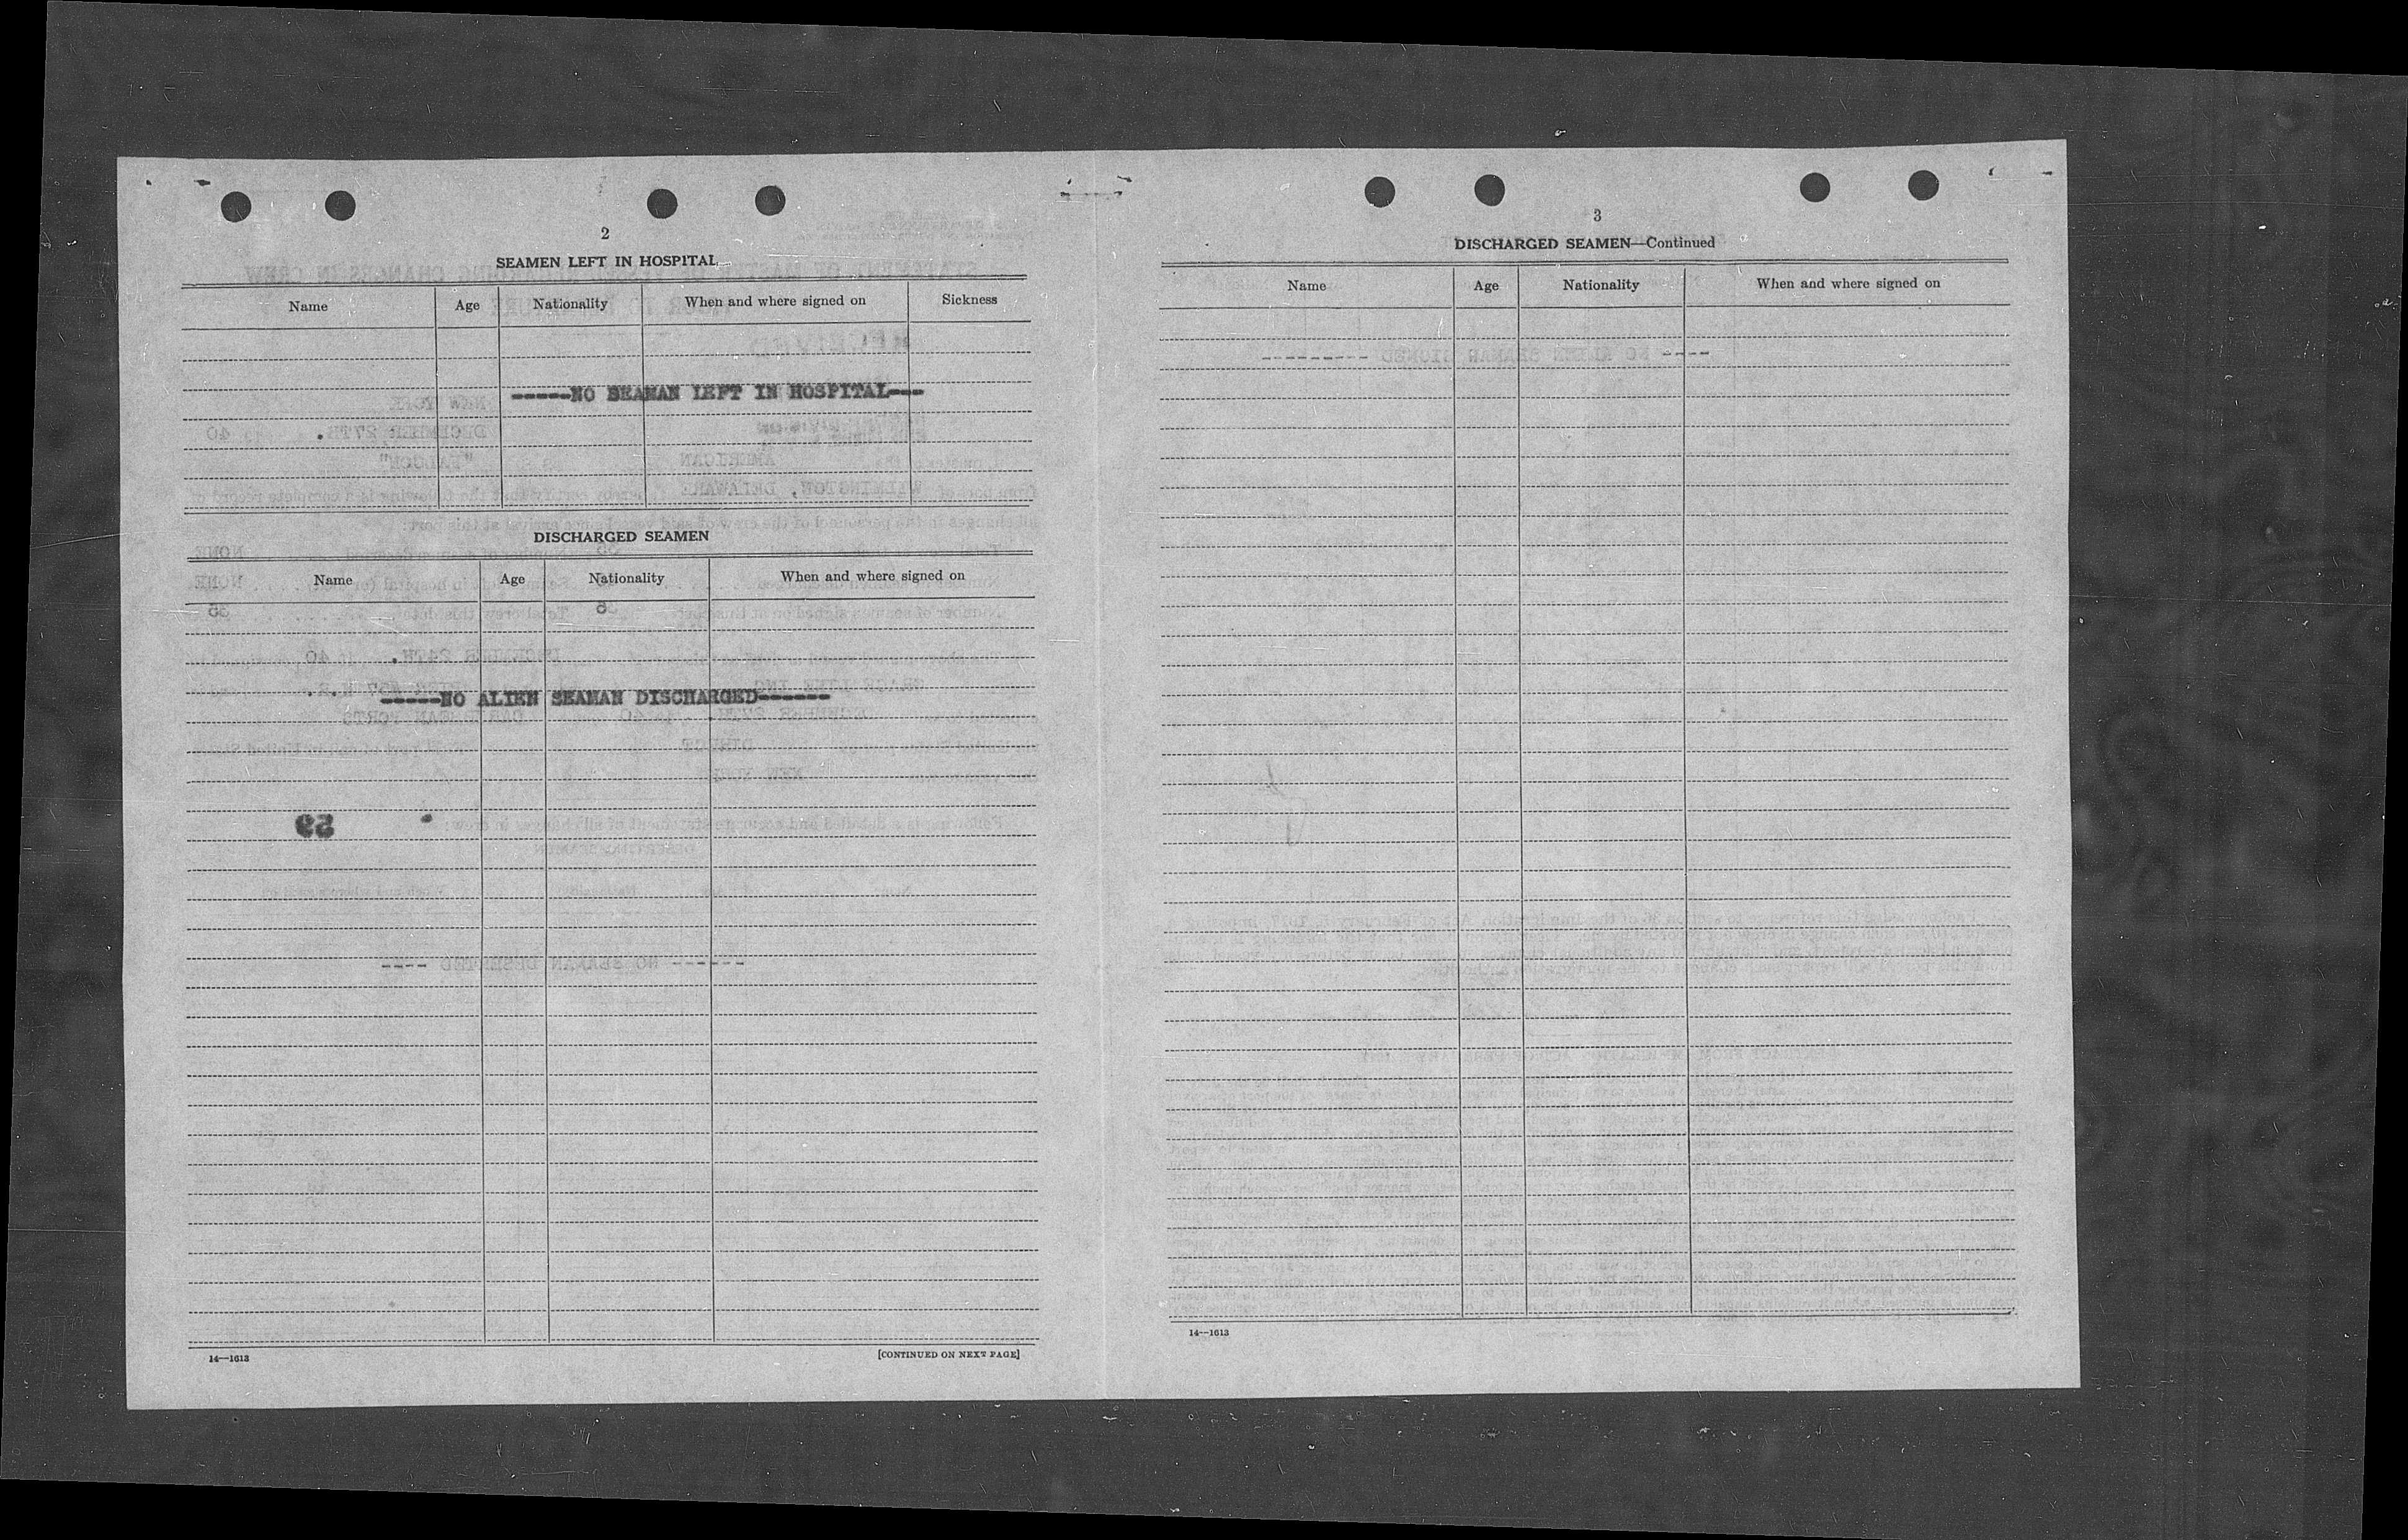 2
SEAMEN LEFT IN HOSPITAL
Name Age Nationality When and where signed on Sickness
-----NO SEAMAN LEFT IN HOSPITAL---
DISCHARGED SEAMEN
Name Age Nationality When and where signed on
-----NO ALIEN SEAMAN DISCHARGED------
14—1613 [CONTINUED ON NEXT PAGE]
3
DISCHARGED SEAMEN—Continued
Name Age Nationality When and where signed on
14—1613